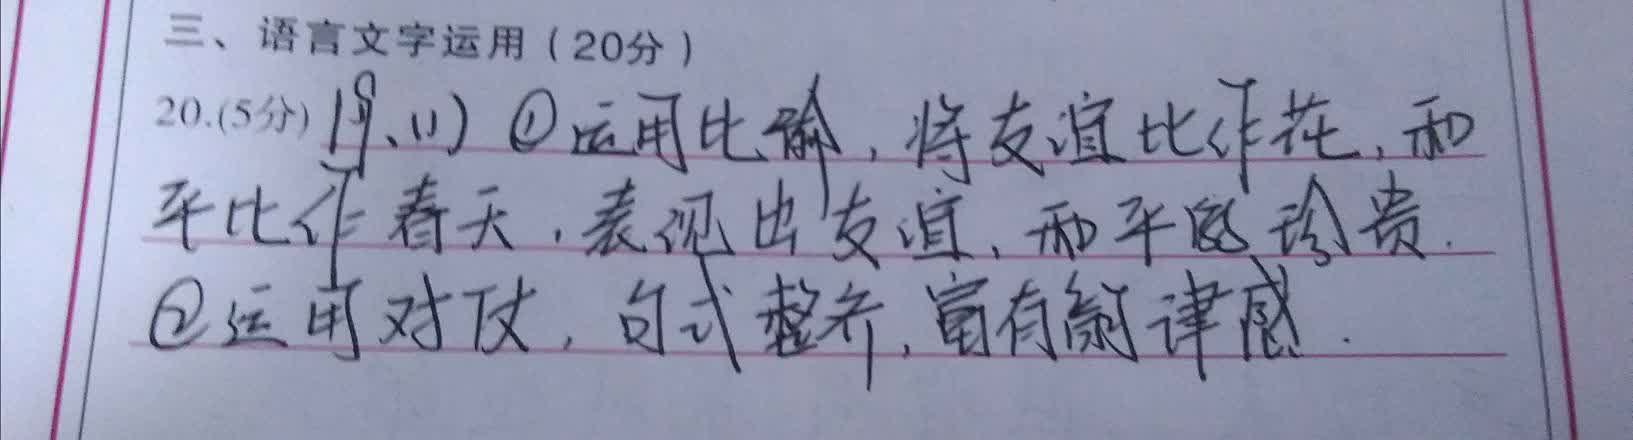 三、语言文字运用（20分）
20.(5分) 19、(1) ①运用比喻，将友谊比作花，和
平比作春天，表现出友谊、和平的珍贵.
②运用对仗，句式整齐，富有韵律感.